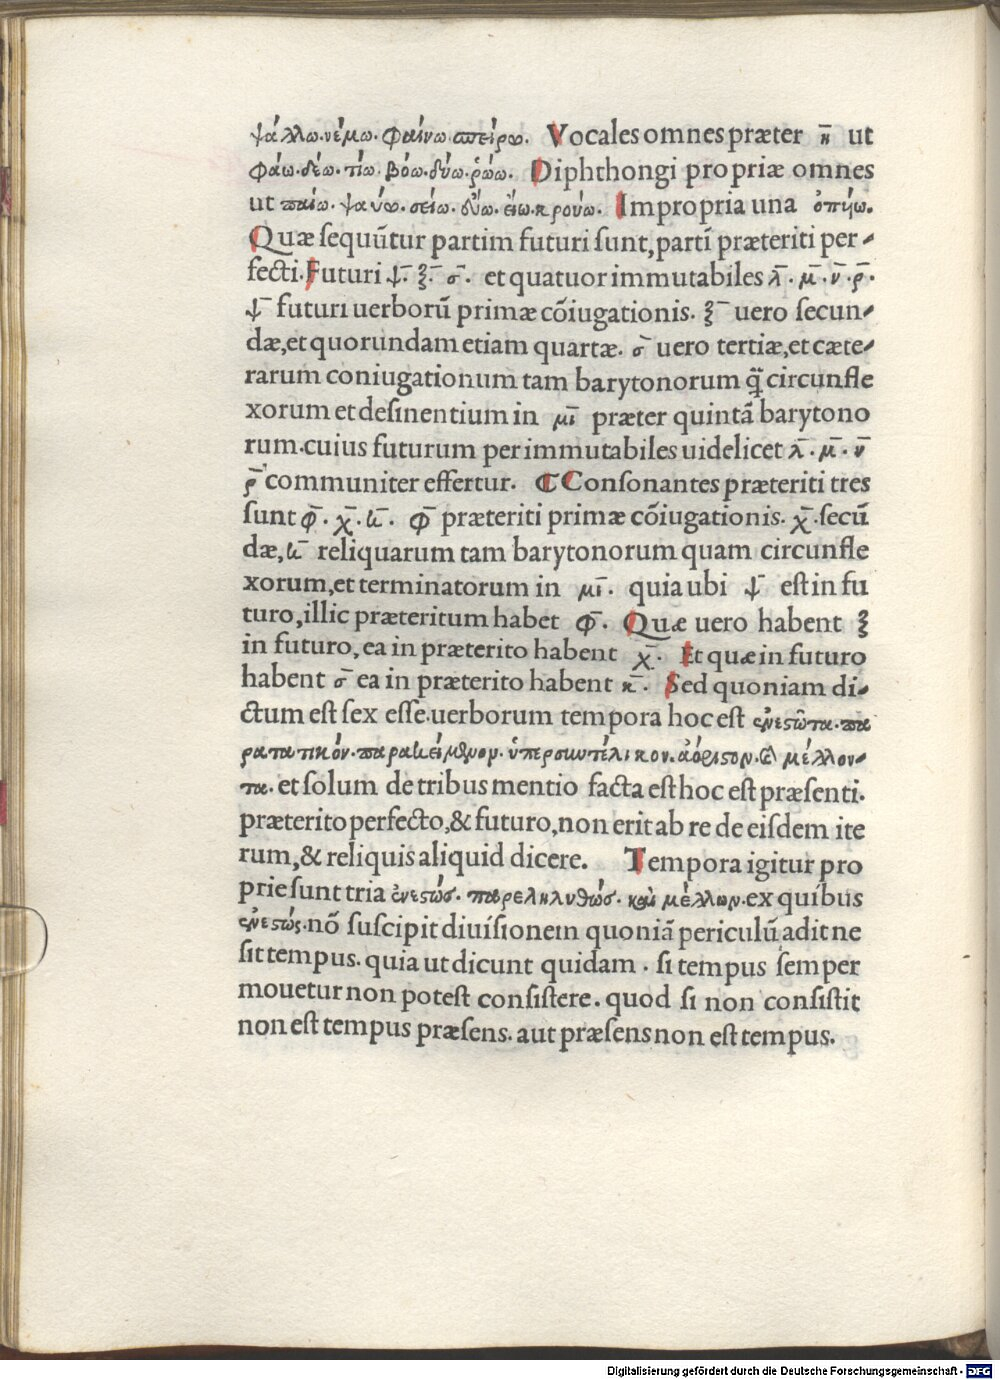 ψάλλω·νέμω· φαίνω σπείρω. Vocales omnes præter η̄ ut
φάω·δέω·τίω· βόω·δύω·ῥώω. Diphthongi propriæ omnes
ut παίω· ψαύω·σείω· εὔω· κρούω. Impropria una ὀπύω.
Quæ ſequūtur partim futuri ſunt,partī præteriti per-
fecti·Futuri ψ̄· ξ̄· σ̄· et quatuor immutabiles λ̄· μ̄· ν̄· ρ̄·
ψ̄ futuri uerborū primæ cōiugationis. ξ̄ uero ſecun-
dæ,et quorundam etiam quartæ. σ̄ uero tertiæ,et cæte-
rarum coniugationum tam barytonorum q̄ circunfle
xorum et deſinentium in μῑ præter quintā barytono
rum.cuius futurum per immutabiles uidelicet λ̄· μ̄· ν̄
ρ̄ communiter effertur. ℂ Conſonantes præteriti tres
ſunt φ̄· χ̄· κ̄· φ̄ præteriti primæ cōiugationis. χ̄·ſecū
dæ,κ̄ reliquarum tam barytonorum quam circunfle
xorum,et terminatorum in μῑ· quia ubi ψ̄ eſt in fu
turo,illic præteritum habet φ̄· Quæ uero habent ξ
in futuro, ea in præterito habent χ̄· Et quæ in futuro
habent σ̄ ea in præterito habent κ̄· Sed quoniam di-
ctum eſt ſex eſſe.uerborum tempora hoc eſt ἐνεστῶτα·πα
ρατατικόν·παρακείμενον· ὑπερσυντέλικον·ἀόριστον·καὶ μέλλον-
τα· et ſolum de tribus mentio facta eſt hoc eſt præſenti.
præterito perfecto,& futuro,non erit ab re de eiſdem ite
rum,& reliquis aliquid dicere. Tempora igitur pro
prie ſunt tria ἐνεστώς· παρεληλυθώς· καὶ μέλλων·ex quibus
ἐνεστώς·nō ſuſcipit diuiſionem quoniā periculū adit ne
ſit tempus. quia ut dicunt quidam . ſi tempus ſemper
mouetur non poteſt conſiſtere. quod ſi non conſiſtit
non eſt tempus præſens. aut præſens non eſt tempus.
Digitalisierung gefördert durch die Deutsche Forschungsgemeinschaft - DFG